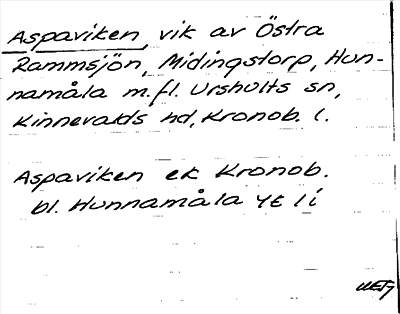 Aspaviken, vik av Östra
Rammsjön, Midingstorp, Hun-
namåla m.fl. Urshults sn,
Kinnevalds hd, Kronob. l.
Aspaviken ek Kronob.
bl. Hunnamåla 4E 1 i